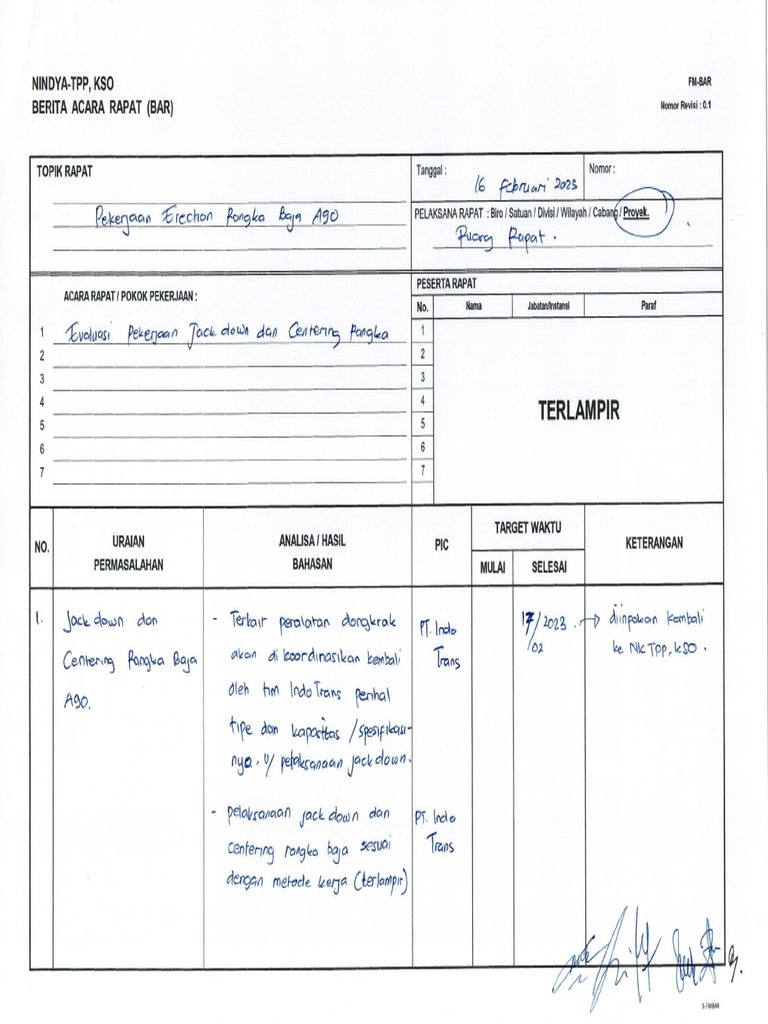 NINDYA-TPP, KSO
BERITA ACARA RAPAT (BAR)
FM-BAR
Nomor Revisi : 0.1
TOPIK RAPAT
Pekerjaan Erection Rangka Baja A90
Tanggal :
16 Februari 2023
Nomor :
PELAKSANA RAPAT : Biro / Satuan / Divisi / Wilayah / Cabang / Proyek.
Ruang Rapat.
ACARA RAPAT / POKOK PEKERJAAN :
1 Evaluasi Pekerjaan Jack down dan Centering Rangka
2
3
4
5
6
7
PESERTA RAPAT
No. Nama Jabatan/Instansi Paraf
1
2
3
4
5
6
7
TERLAMPIR
NO.
URAIAN
PERMASALAHAN
ANALISA / HASIL
BAHASAN
PIC
TARGET WAKTU
MULAI SELESAI
KETERANGAN
1.
Jack down dan
Centering Rangka Baja
A90.
- Terkait peralatan dongkrak
akan di koordinasikan kembali
oleh tim Indo Trans perihal
tipe dan kapasitas / spesifikasi-
nya. u/ pelaksanaan jack down.
PT. Indo
Trans
17/02/2023
→ diinpokan kembali
ke NK TPP, KSO.
- pelaksanaan jack down dan
centering rangka baja sesuai
dengan metode kerja (terlampir)
PT. Indo
Trans